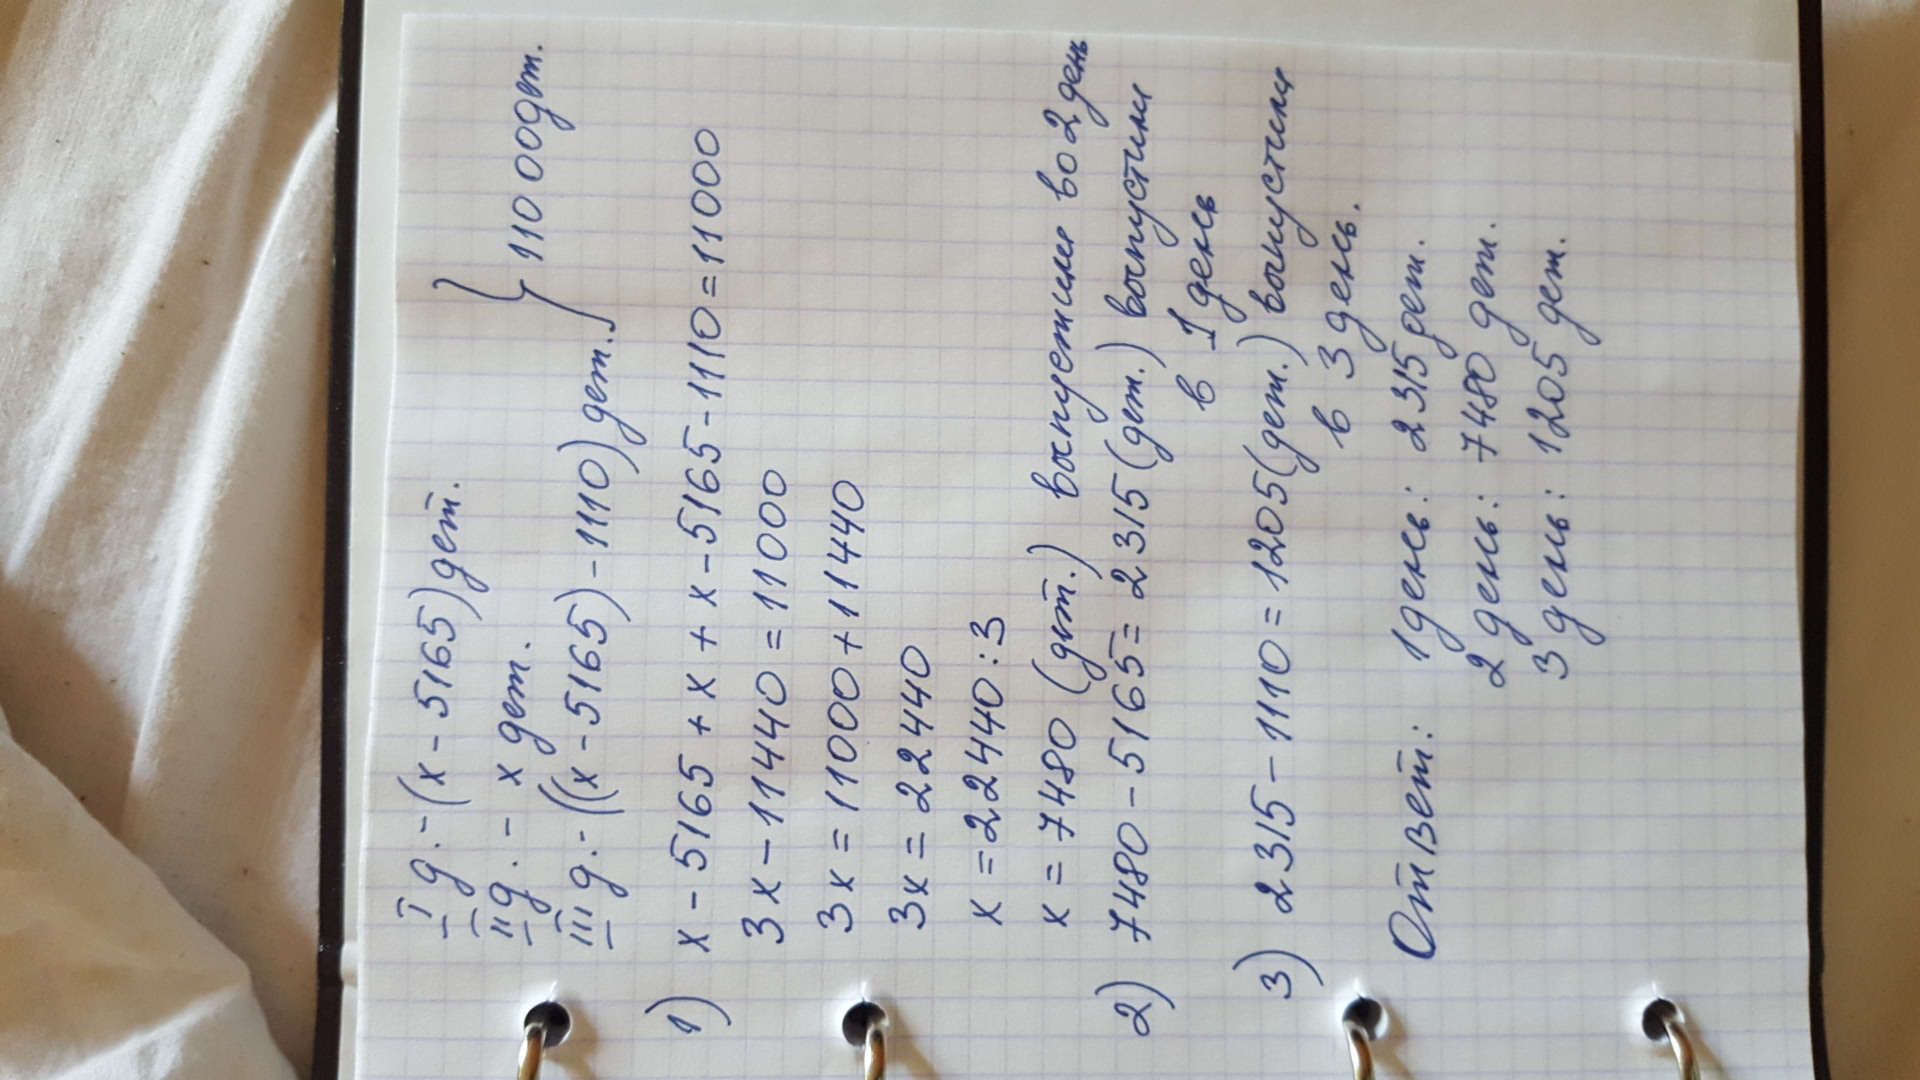 I д. - (x - 5165) дет.
II д. - x дет.
III д. - ((x - 5165) - 1110) дет. } 11000 дет.
1) x - 5165 + x + x - 5165 - 1110 = 11000
3x - 11440 = 11000
3x = 11000 + 11440
3x = 22440
x = 22440 : 3
x = 7480 (дет.) выпустили во 2 день
2) 7480 - 5165 = 2315 (дет.) выпустили
в 1 день
3) 2315 - 1110 = 1205 (дет.) выпустили
в 3 день.
Ответ: 1 день: 2315 дет.
2 день: 7480 дет.
3 день: 1205 дет.